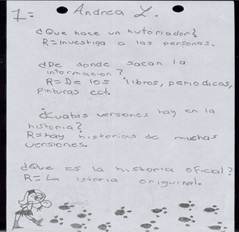 1= Andrea L.
¿Que hace un hutoriador?
R= investiga a las personas.
¿De donde sacan la
informacion?
R= De los libros, periodicos,
pinturas ect.
¿Cuatas versiones hay en la
historia?
R= hay historias de muchas
versiones.
¿Que es la historia oficial?
R= La istoria origuinal.